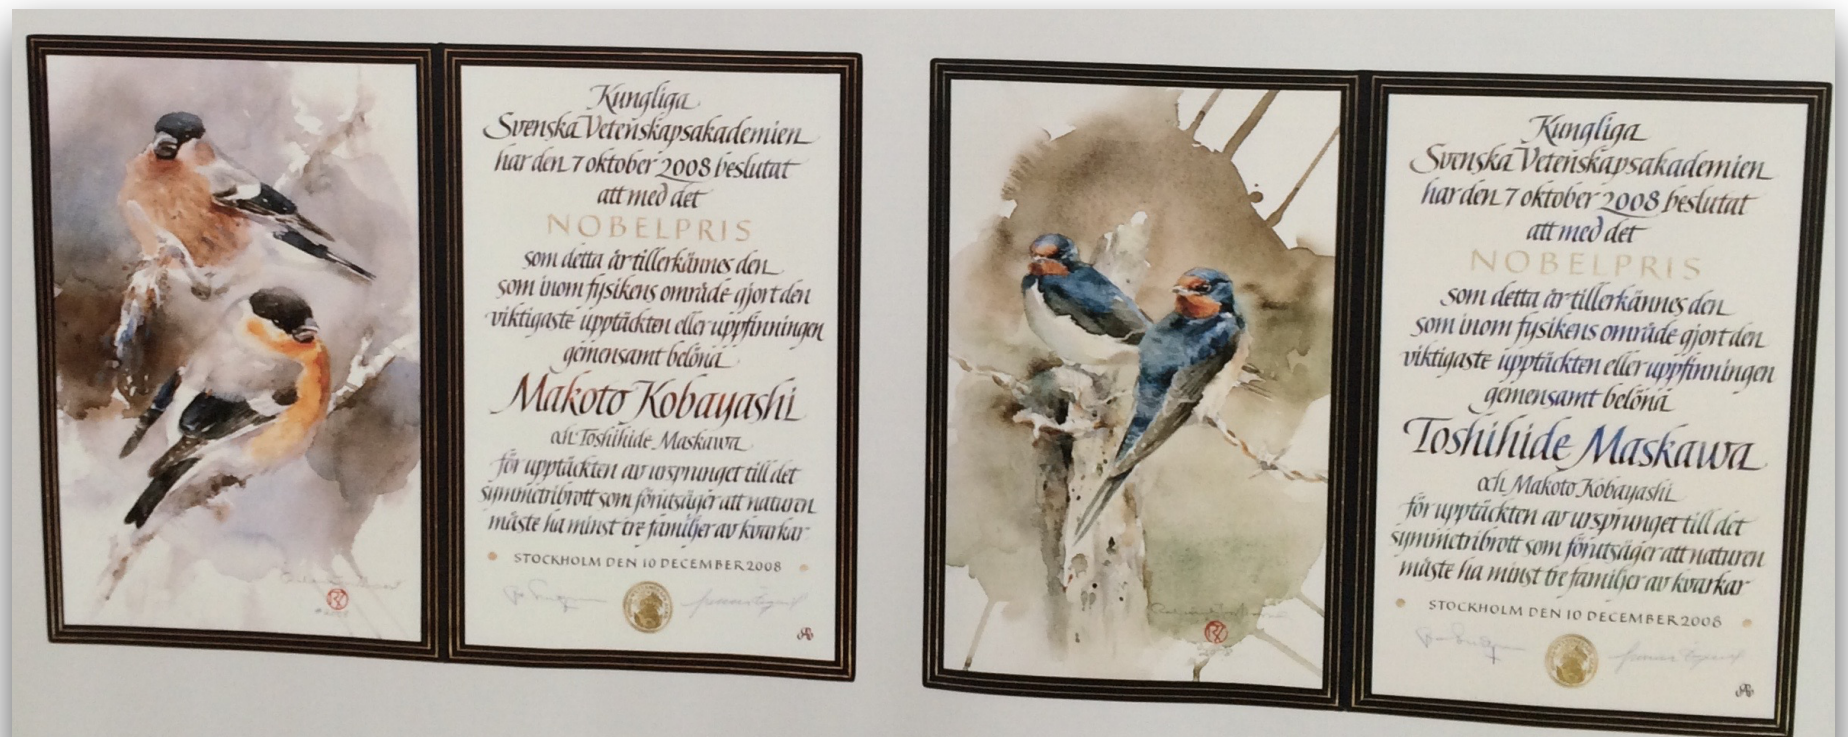 Kungliga
Svenska Vetenskapsakademien
har den 7 oktober 2008 beslutat
att med det
NOBELPRIS
som detta år tillerkännes den
som inom fysikens område gjort den
viktigaste upptäckten eller uppfinningen
gemensamt belöna
Makoto Kobayashi
och Toshihide Maskawa
för upptäckten av ursprunget till det
symmetribrott som förutsäger att naturen
måste ha minst tre familjer av kvarkar
STOCKHOLM DEN 10 DECEMBER 2008
Kungliga
Svenska Vetenskapsakademien
har den 7 oktober 2008 beslutat
att med det
NOBELPRIS
som detta år tillerkännes den
som inom fysikens område gjort den
viktigaste upptäckten eller uppfinningen
gemensamt belöna
Toshihide Maskawa
och Makoto Kobayashi
för upptäckten av ursprunget till det
symmetribrott som förutsäger att naturen
måste ha minst tre familjer av kvarkar
STOCKHOLM DEN 10 DECEMBER 2008